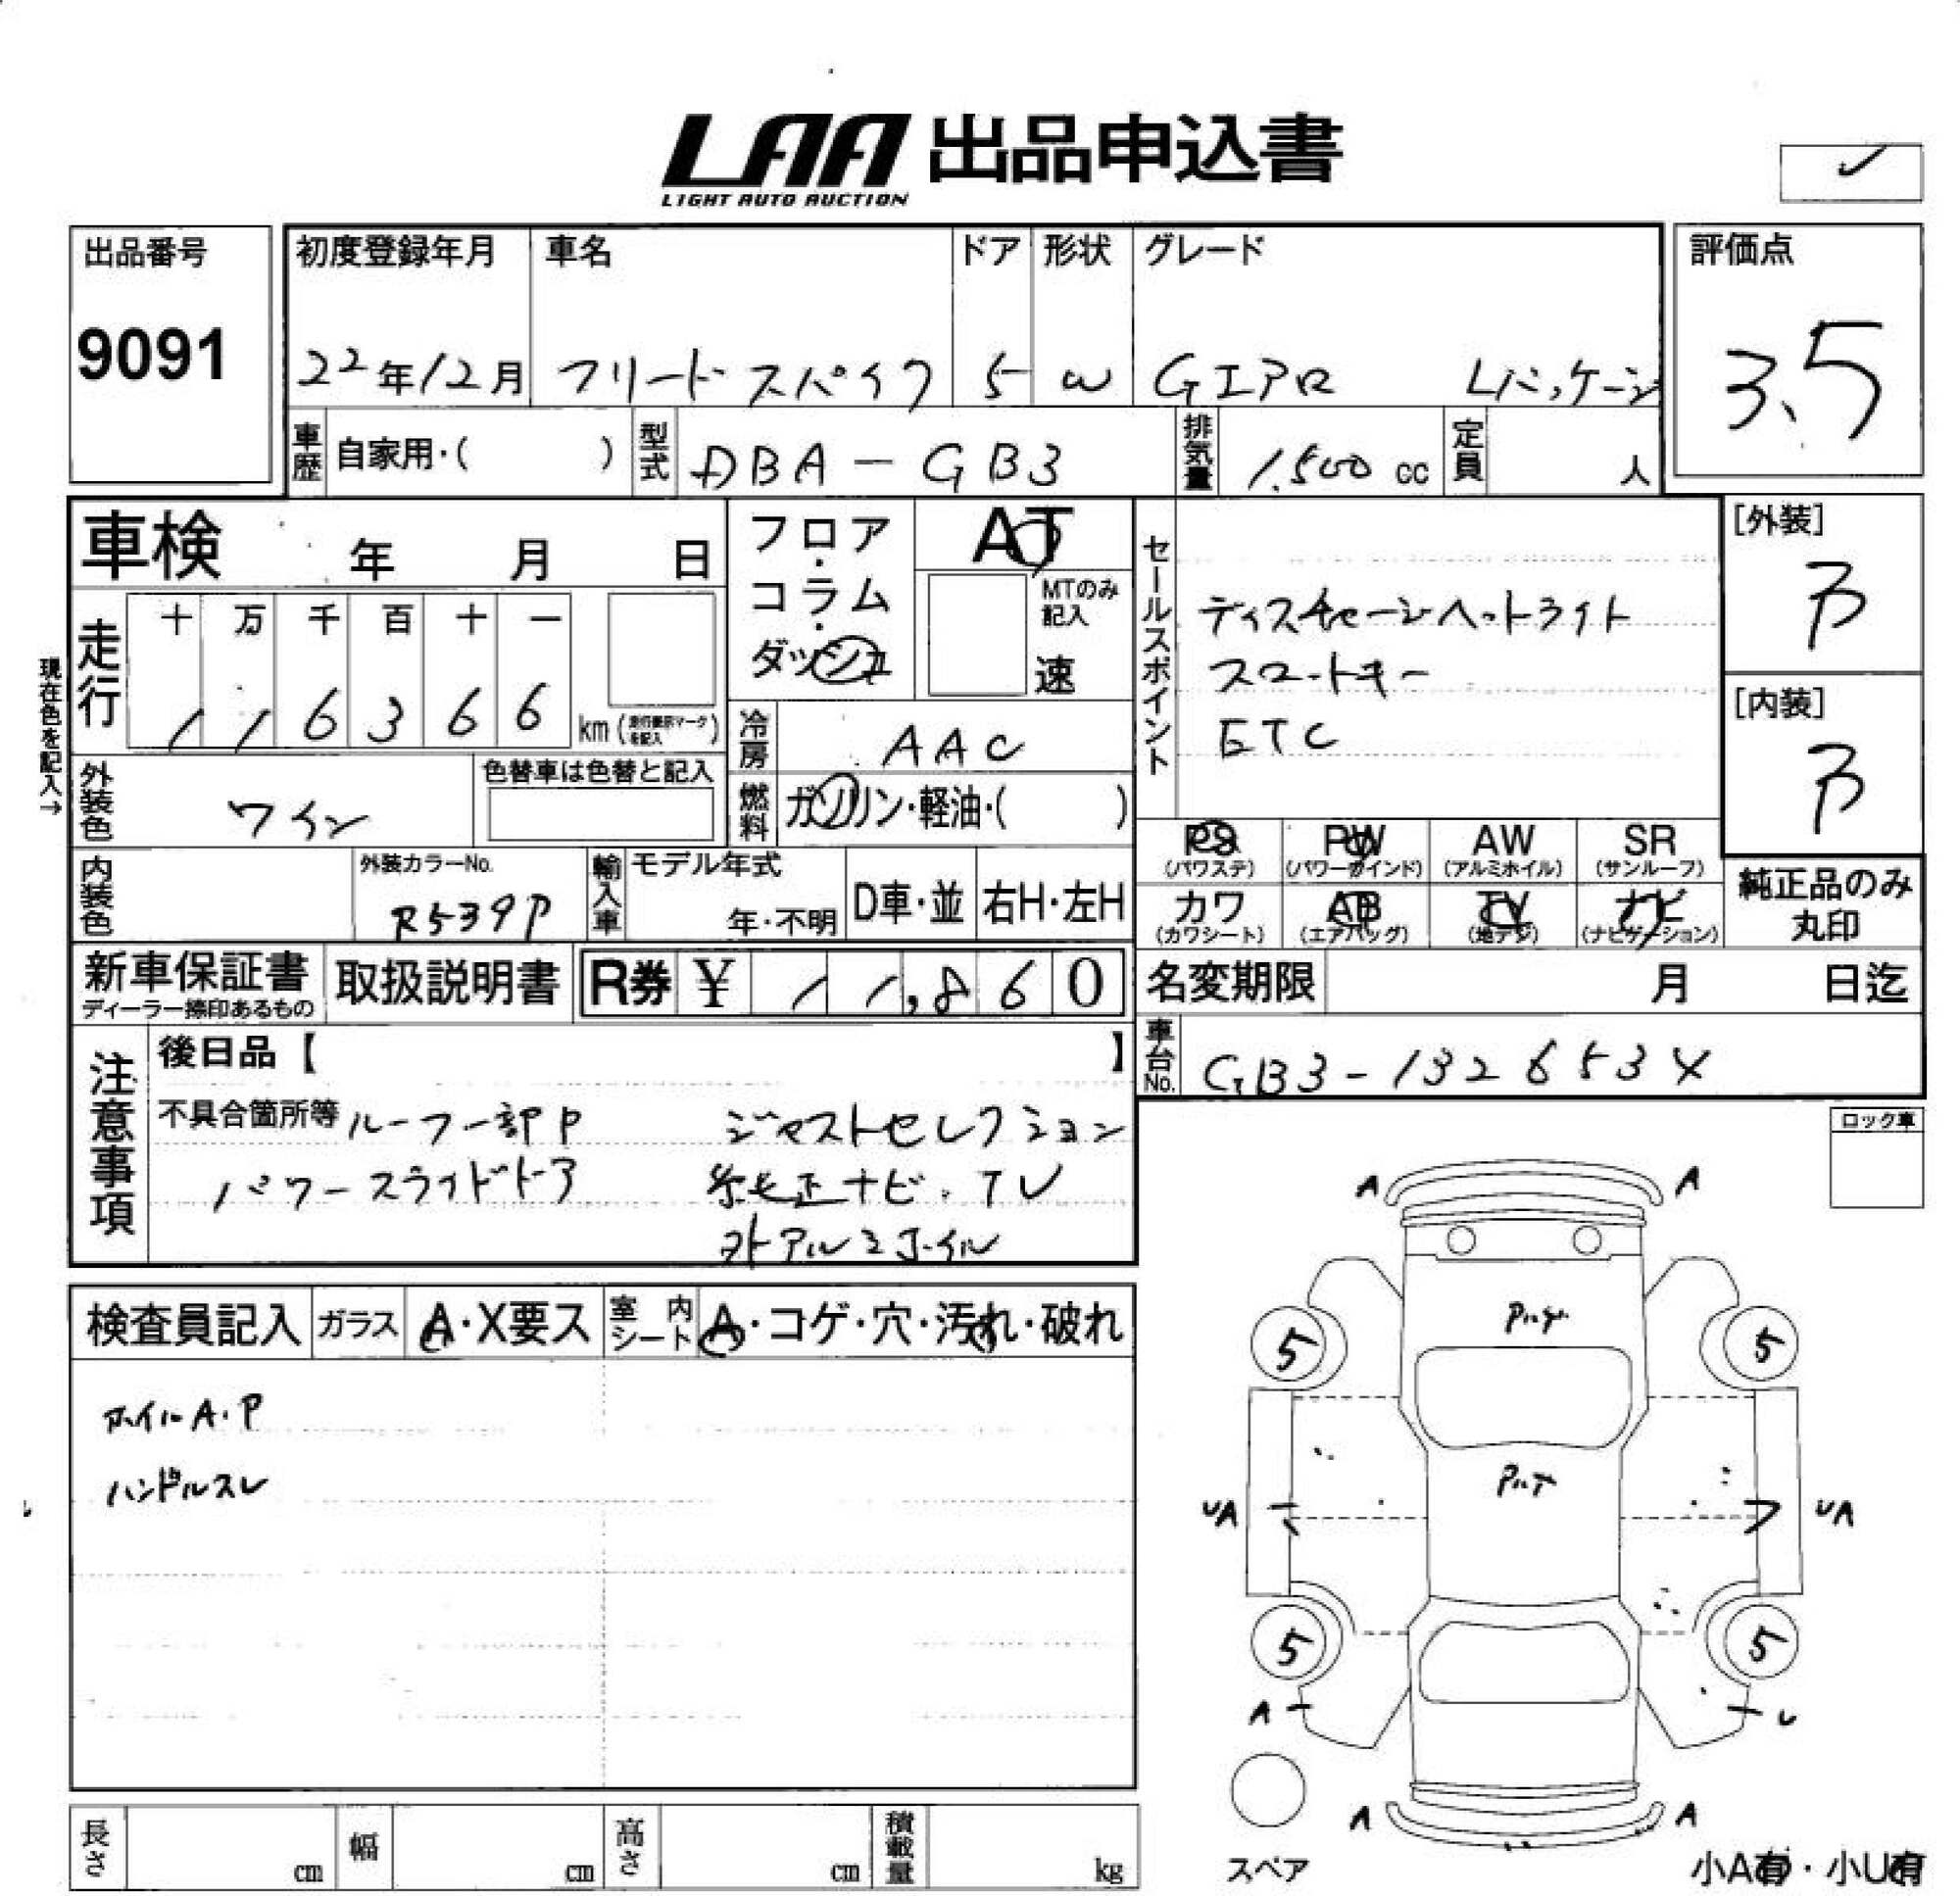 LAA 出品申込書
LIGHT AUTO AUCTION
出品番号
9091
初度登録年月 車名 ドア 形状 グレード
22年12月 フリードスパイク 5 W Gエアロ Lパッケージ
評価点
3.5
車歴 自家用・( ) 型式 DBA-GB3 排気量 1,500 cc 定員 人
車検 年 月 日
フロア・コラム・ダッシュ
AT
MTのみ記入
速
現在色を記入→
走行
十 万 千 百 十 一
1 1 6 3 6 6 km (走行表示マークを記入)
冷房 AAC
燃料 ガソリン・軽油・( )
外装色 ワイン
色替車は色替と記入
セールスポイント
ディスチャージヘットライト
スマートキー
ETC
[外装]
B
[内装]
B
PS (パワステ) PW (パワーウインド) AW (アルミホイル) SR (サンルーフ)
カワ (カワシート) AB (エアバッグ) TV (地デジ) ナビ (ナビゲーション)
純正品のみ
丸印
内装色 外装カラーNo. R539P
輸入車 モデル年式 年・不明 D車・並 右H・左H
新車保証書
ディーラー捺印あるもの
取扱説明書
R券 ¥ 11,860
名変期限 月 日迄
車台No. GB3-132653X
注意事項
後日品【 】
不具合箇所等 ルーフ一部P ジャストセレクション
パワースライドドア 純正ナビ.TV
外アルミホイル
ロック車
検査員記入 ガラス A・X要ス 室内シート A・コゲ・穴・汚れ・破れ
ホイルA.P
ハンドルスレ
A A
5 5
UA UA
5 5
A U
A A
スペア
小A有・小U有
長さ cm 幅 cm 高さ cm 積載量 kg